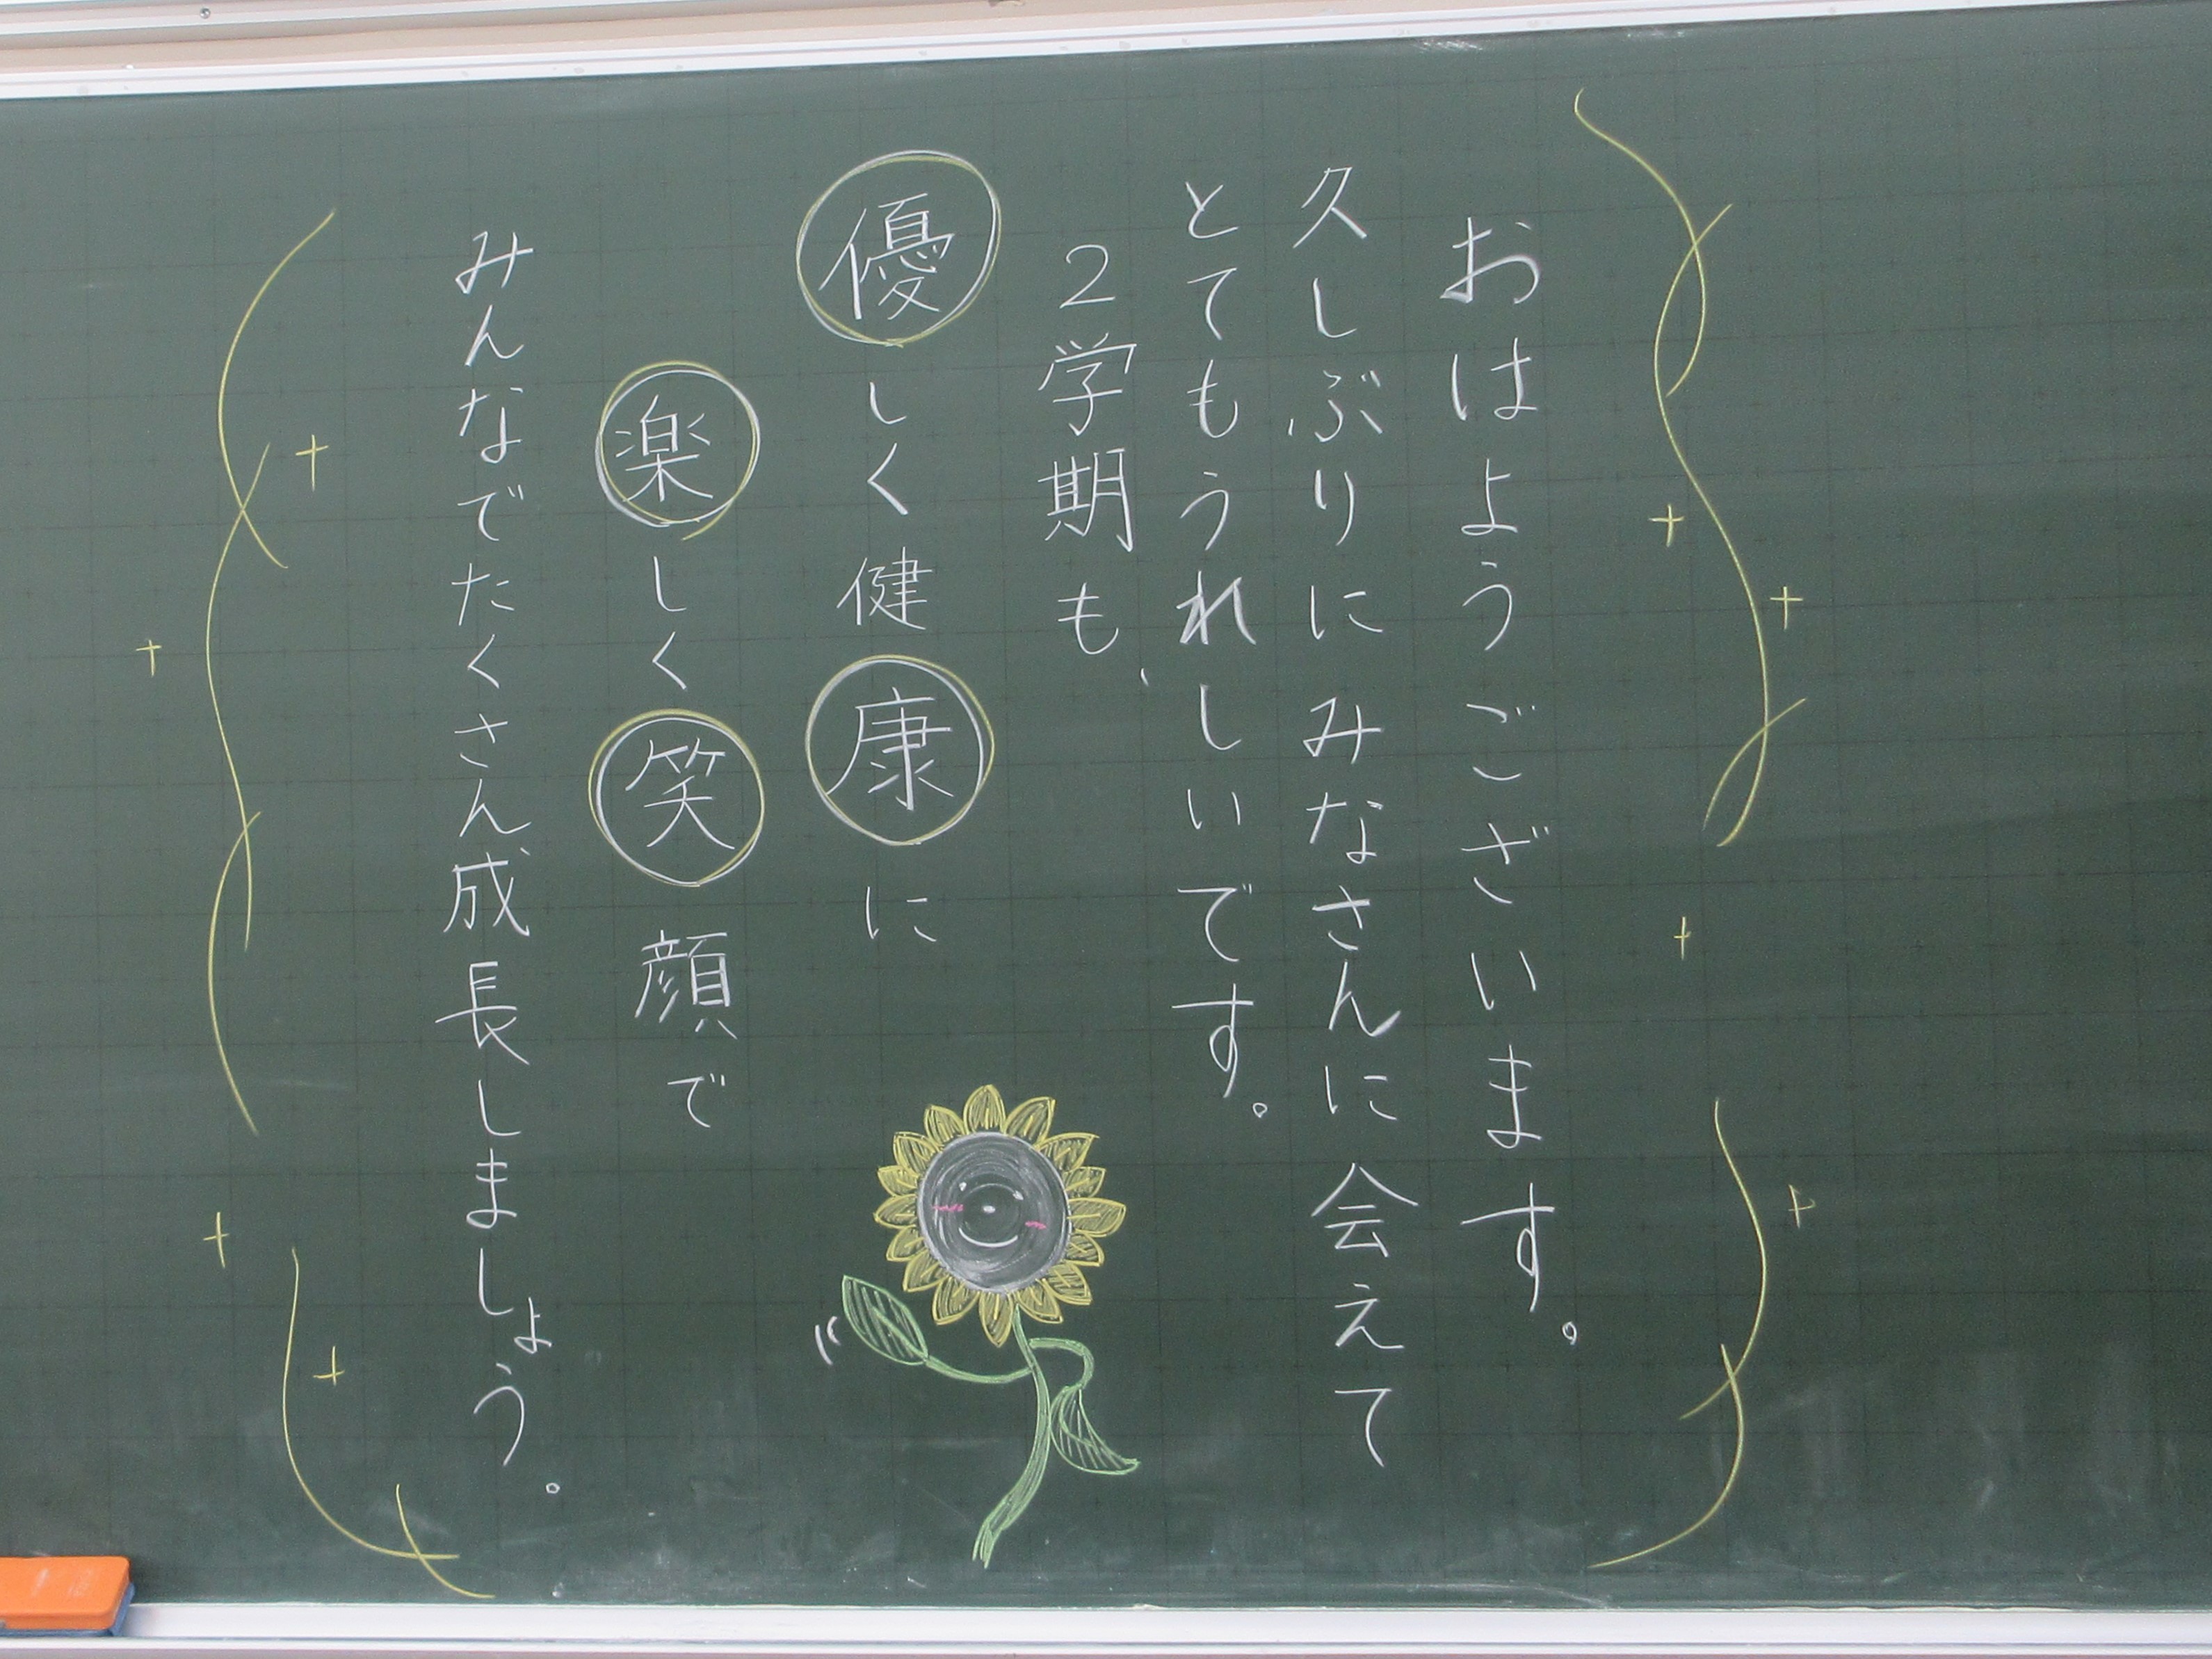 おはようございます。
久しぶりにみなさんに会えて
とてもうれしいです。
2学期も、
優しく健康に
楽しく笑顔で
みんなでたくさん成長しましょう。